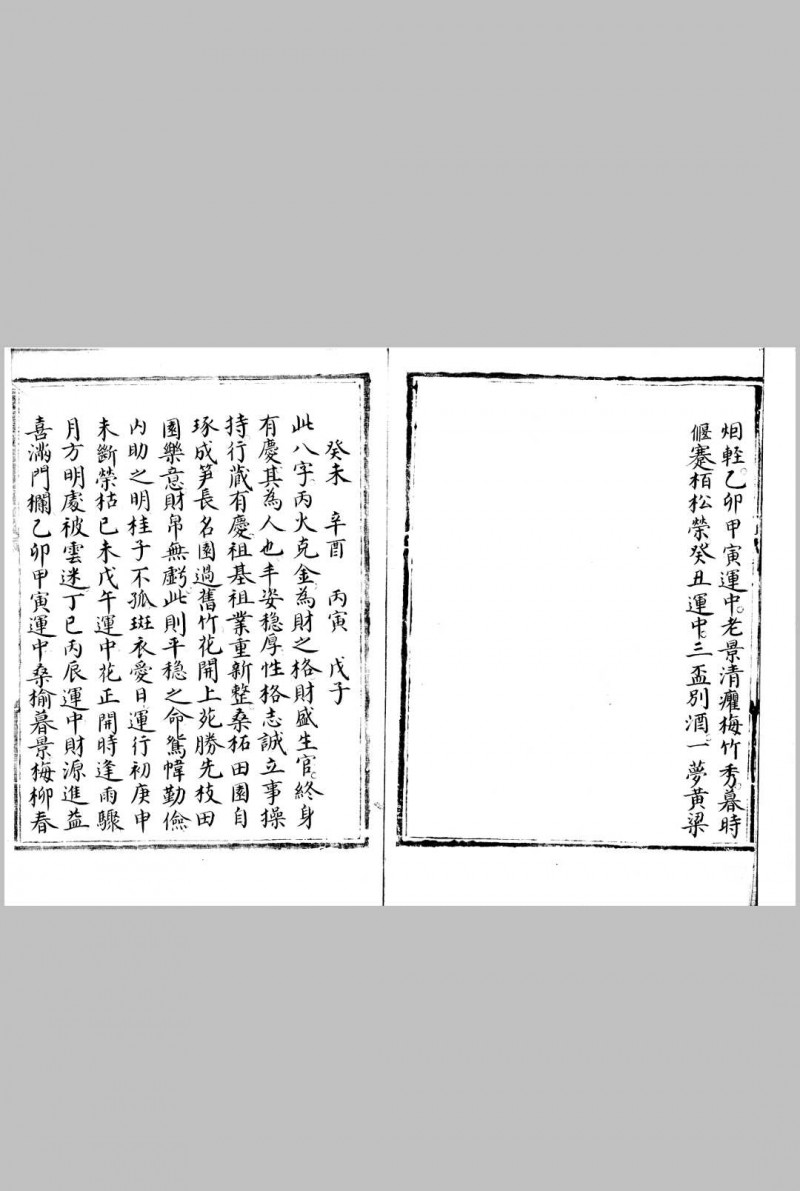 烟輕乙卯甲寅運中老景清癯梅竹秀暮時
偃蹇栢松榮癸丑運中三盃別酒一夢黄粱
癸未 辛酉 丙寅 戊子
此八字丙火克金為財之格財盛生官終身
有慶其為人也丰姿穩厚性格志誠立事操
持行藏有慶祖基祖業重新整桑柘田園自
琢成笋長名園過舊竹花開上苑勝先枝田
園樂意財帛無虧此則平穩之命鴛幃勤儉
内助之明桂子不孤斑衣愛日運行初庚申
未斷榮枯已未戊午運中花正開時逢雨驟
月方明處被雲迷丁巳丙辰運中財源進益
喜滿門欄乙卯甲寅運中桑榆暮景梅柳春